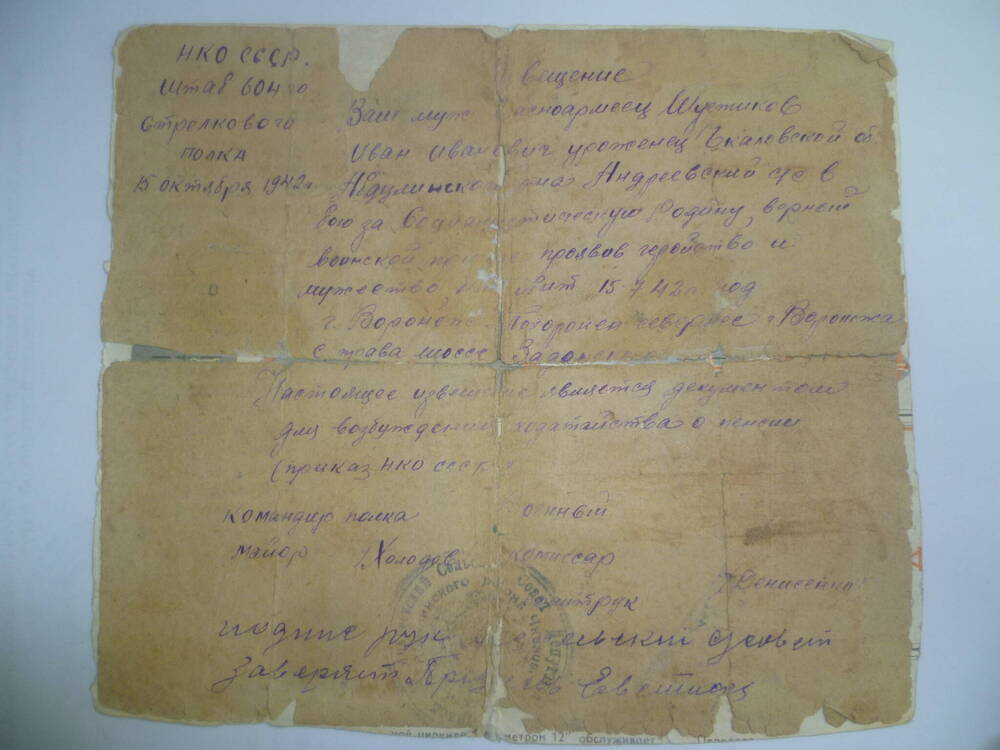 НКО СССР.
Штаб 604 го
Стрелкового
полка
15 октября 1942г.
вещение
Ваш муж асноармеец Шустиков
Иван Иванович уроженец Чкаловской об.
Абдулинского она Андреевский с/с в
бою за Социалистическую Родину, верный
воинской проявив геройство и
мужество, 15-7 42г. год
г. Воронеж. Похоронен севернее г. Воронежа
с права шоссе Задонск
Настоящее извещение является документом
для возбуждения ходатайства о пенсии
(приказ НКО СССР
Командир полка оенный
майор /Холодов комиссар
Денисенко
итрук
подпис рук ельский совет
Заверяет
метром 12" обслуживает